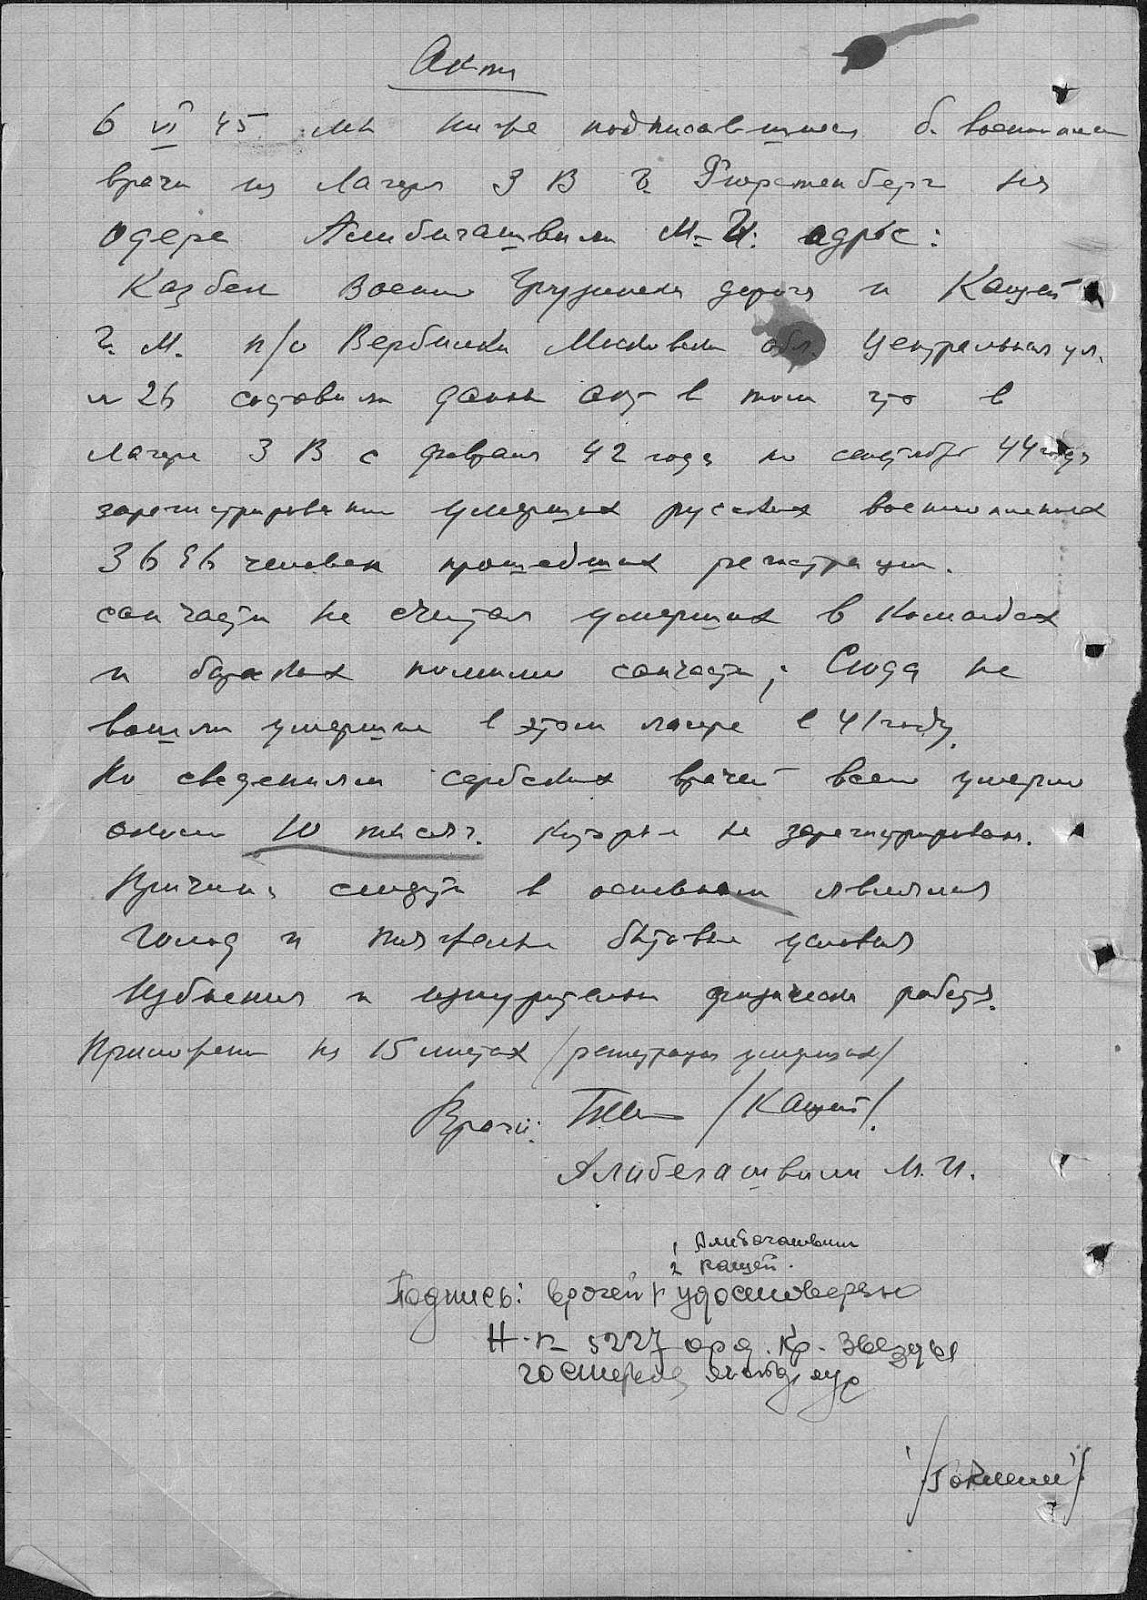 Акт
6 VI 45 мы ниже подписавшиеся б. военнопл
врачи из Лагеря 3 В г. Фюрстенберг на
Одере Алибегашвили М-И: адрес:
Казбек Военно Грузинская дорога и Кащей
Г. М. п/о Вербилки Московская обл. Центральная ул.
№ 26 составили данный акт в том что в
лагере 3 В с февраля 42 года по сентябрь 44 года
зарегистрировано умерших русских военнопленных
3696 человек прошедших регистрации.
санчасти не считая умерших в командах
и бараках помимо санчасти; Сюда не
вошли умершие в этом лагере в 41 году.
По сведениям сербских врачей всего умерло
около 10 тысяч. которые не зарегистрированы.
Причина смерти в основном являлся
голод и тяжелые бытовые условия
Избиения и изнурительная физическая работа.
Приложение на 15 листах /регистрация умерших/
Врачи: /Кащей/.
Алибегашвили М. И.
1 Алибегашвили
2 Кащей.
Подпись: врачей удостоверяю
Н-к 5227 орд. Кр. Звезды
госпиталя